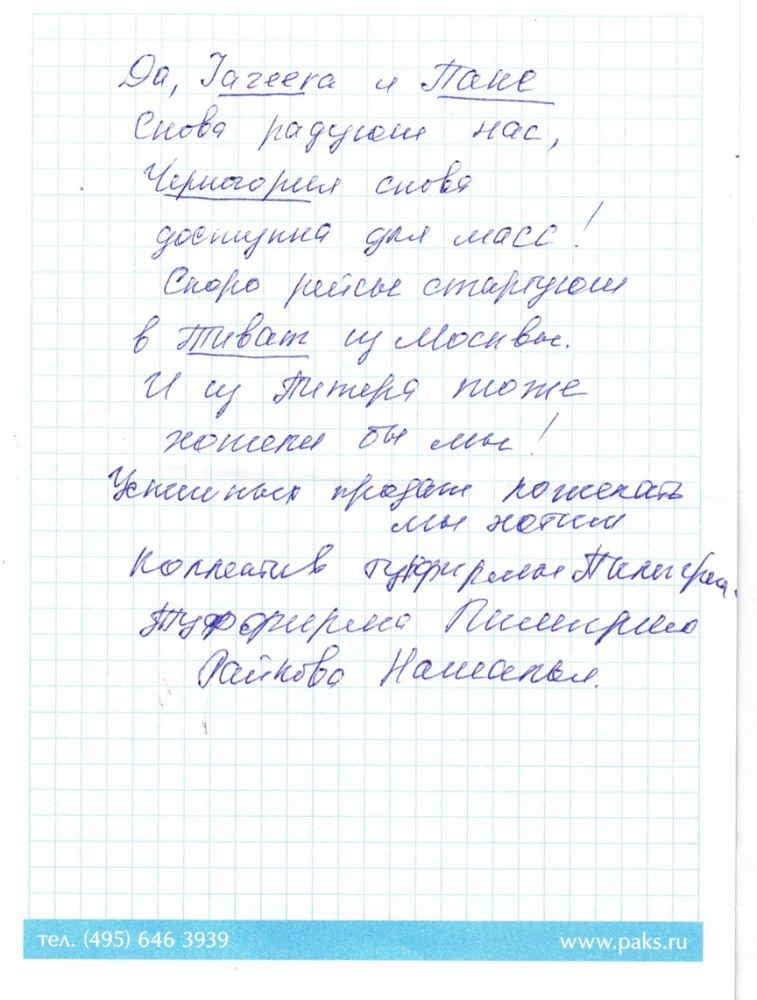 Да, Јагеека и Пакс
Снова радуют нас,
Черногория снова
доступна для масс!
Скоро рейсы стартуют
в Тиват из Москвы.
И из Питера тоже
хотели бы мы!
Успешных продаж пожелать
мы хотим
Коллектив турфирмы Пилигрим.
Турфирма Пилигрим
Райкова Наталья.
тел. (495) 646 3939
www.paks.ru